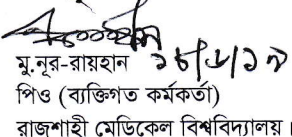 মু.নূর-রায়হান
পিও (ব্যক্তিগত কর্মকর্তা)
রাজশাহী মেডিকেল বিশ্ববিদ্যালয়।